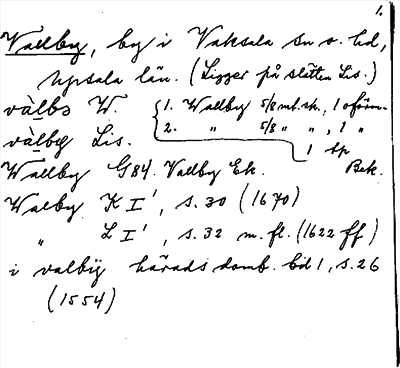 1.
Vallby, by i Vaksala sn o. hd,
Upsala län. (Ligger på slätten Lis.)
vàlbɘ W. { 1. Wallby 5/8 mt. sk., 1 oförm.
vàlby Lis. 2. " 5/8 " ", 1 "
1 tp
Wallby G84. Vallby Ek. Bek.
Walby K I', s. 30 (1670)
" L I', s. 32 m. fl. (1622 ff)
i valbÿ härads domb. bd 1, s. 26
(1554)